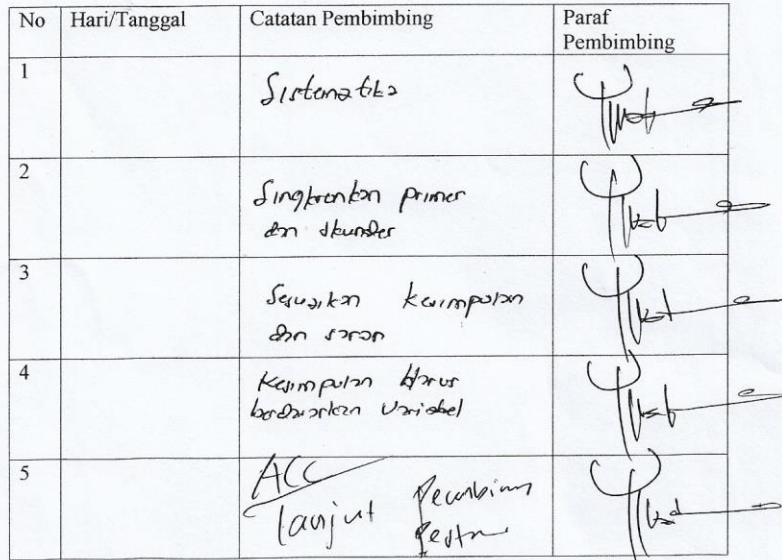 No Hari/Tanggal Catatan Pembimbing Paraf
Pembimbing
1 Sistematika
2 Singkronkan primer
dan skunder
3 Sesuaikan kesimpulan
dan saran
4 Kesimpulan Harus
berdasarkan Variabel
5 ACC
lanjut